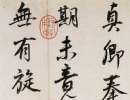 真卿奉
期未竟
無有旋